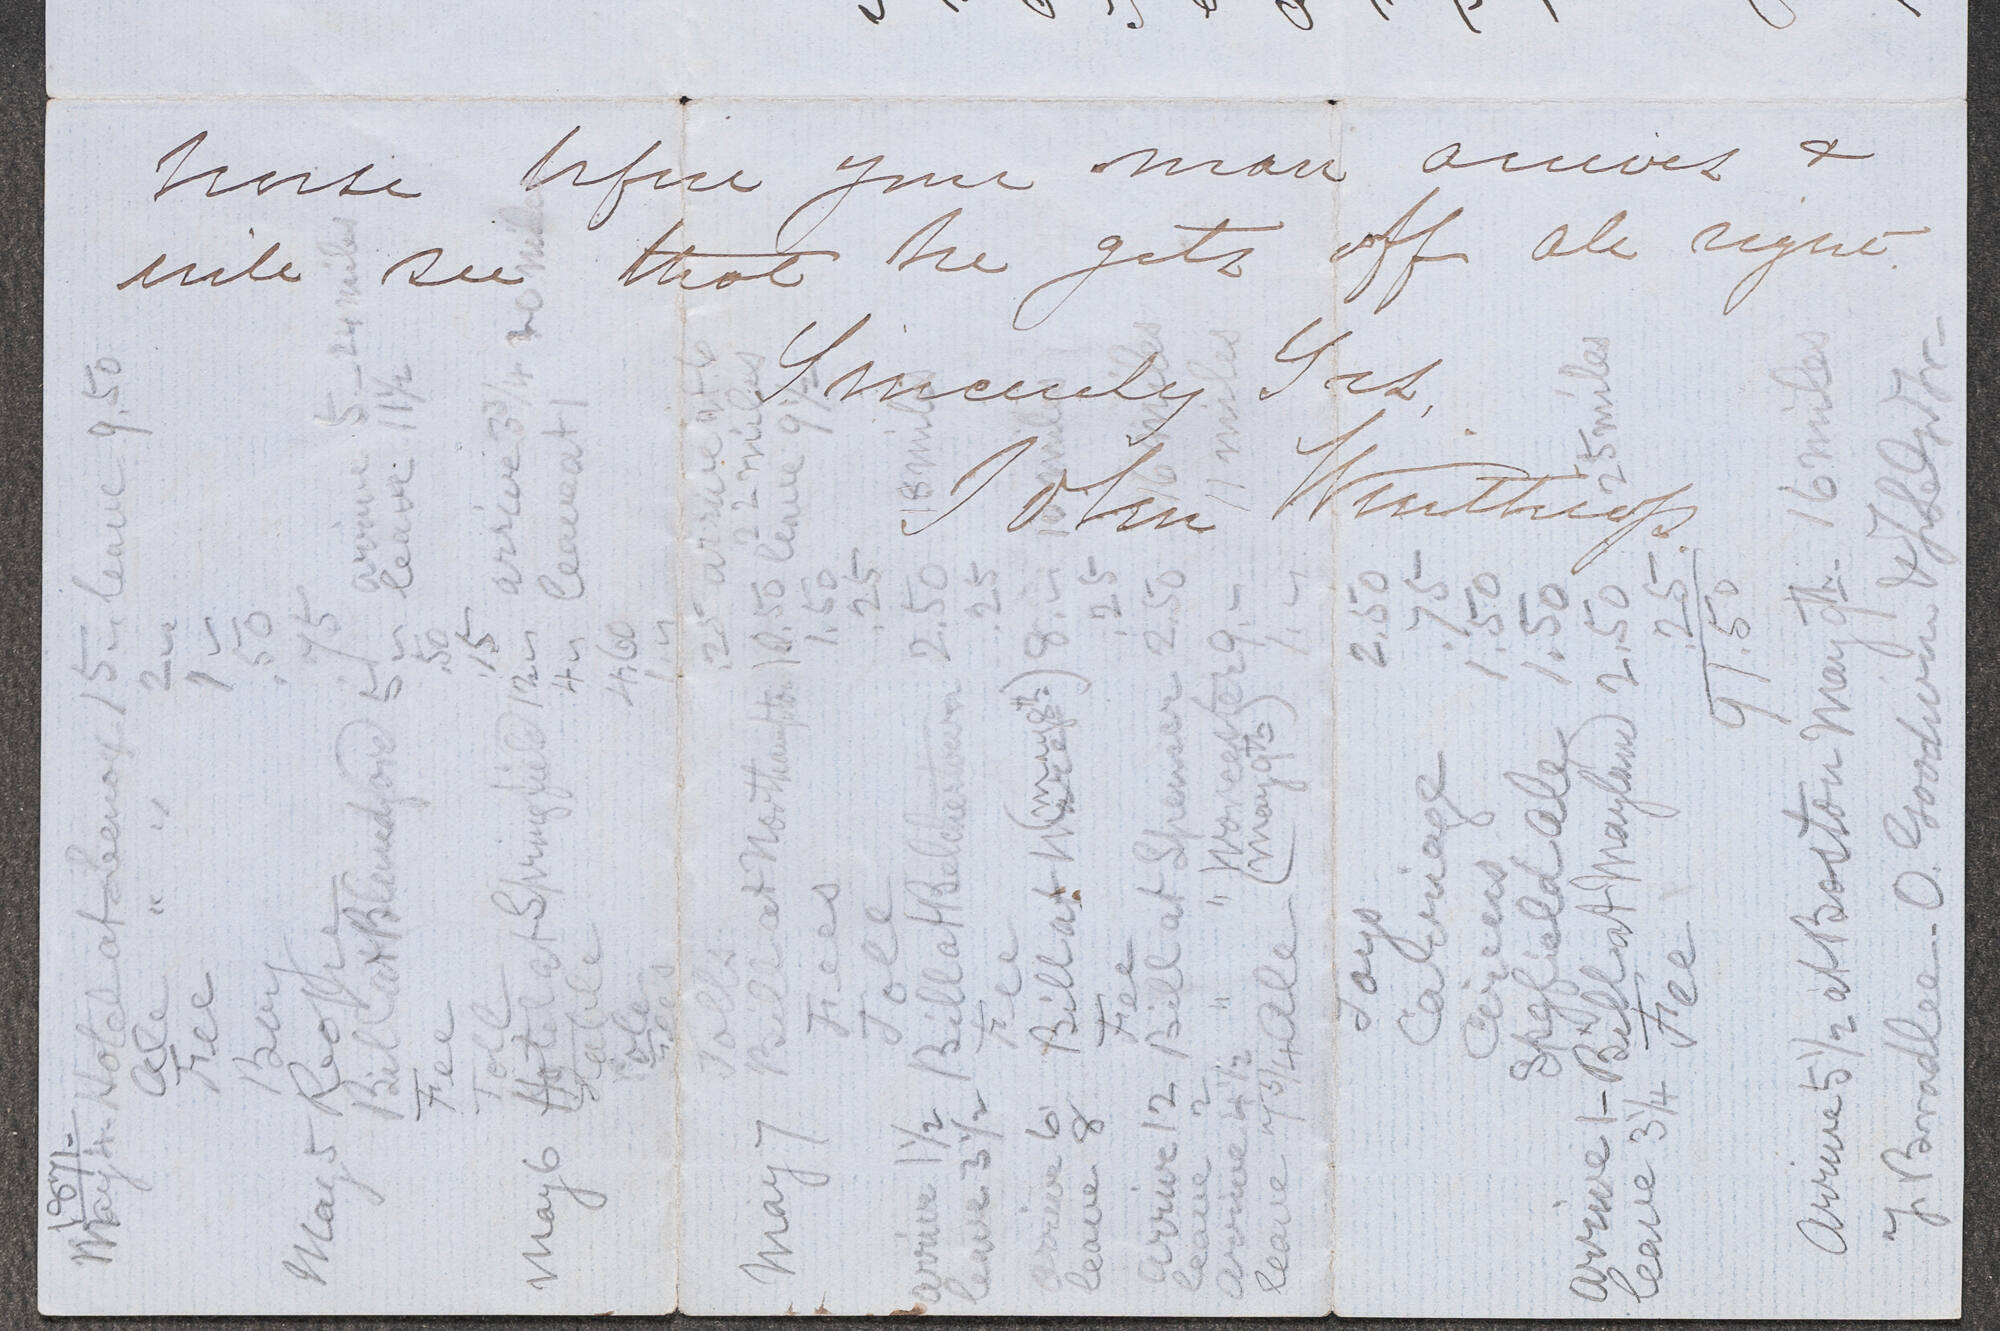 horse before your man arrives &
will see that he gets off all right.
Sincerely Yrs,
John Winthrop.
1871.
May 4 Hotel at Lenox 15 " leave 9.50
Ale " " 2 "
Fee 1 "
Boy .50
May 5 .75
Bill at Blandford 5 " arrive 5 - 24 miles
leave 11½
Fee .50
Toll .15
May 6 Hotel at Springfield 12 " arrive 3¾ 20 miles
4 " leave at 1
4.60
Tolls .25 arrive at 6
22 miles
May 7 Bill at Northampton 10.50 leave 9½
Fees 1.50
Toll .25
arrive 1½ Bill at Belchertown 2.50 18 miles
leave 3½ Fee .25
arrive 6 Bill at (May 8th) 8. " 10 miles
leave 8 Fee .25
arrive 12 Bill at Spencer 2.50 16 miles
leave 2
arrive 4½ " " Worcester 9. " 11 miles
leave 7¾ Ale (May 9th) 1. "
Toys 2.50
Carriage .75
Circus 1.50
Spgfield ale 1.50
arrive 1 - Bill at Mayland 2.50 25 miles
leave 3¼ Fee .25
91.50
Arrive 5½ at Boston May 9th. 16 miles
Bradlee - O. Goodwin &